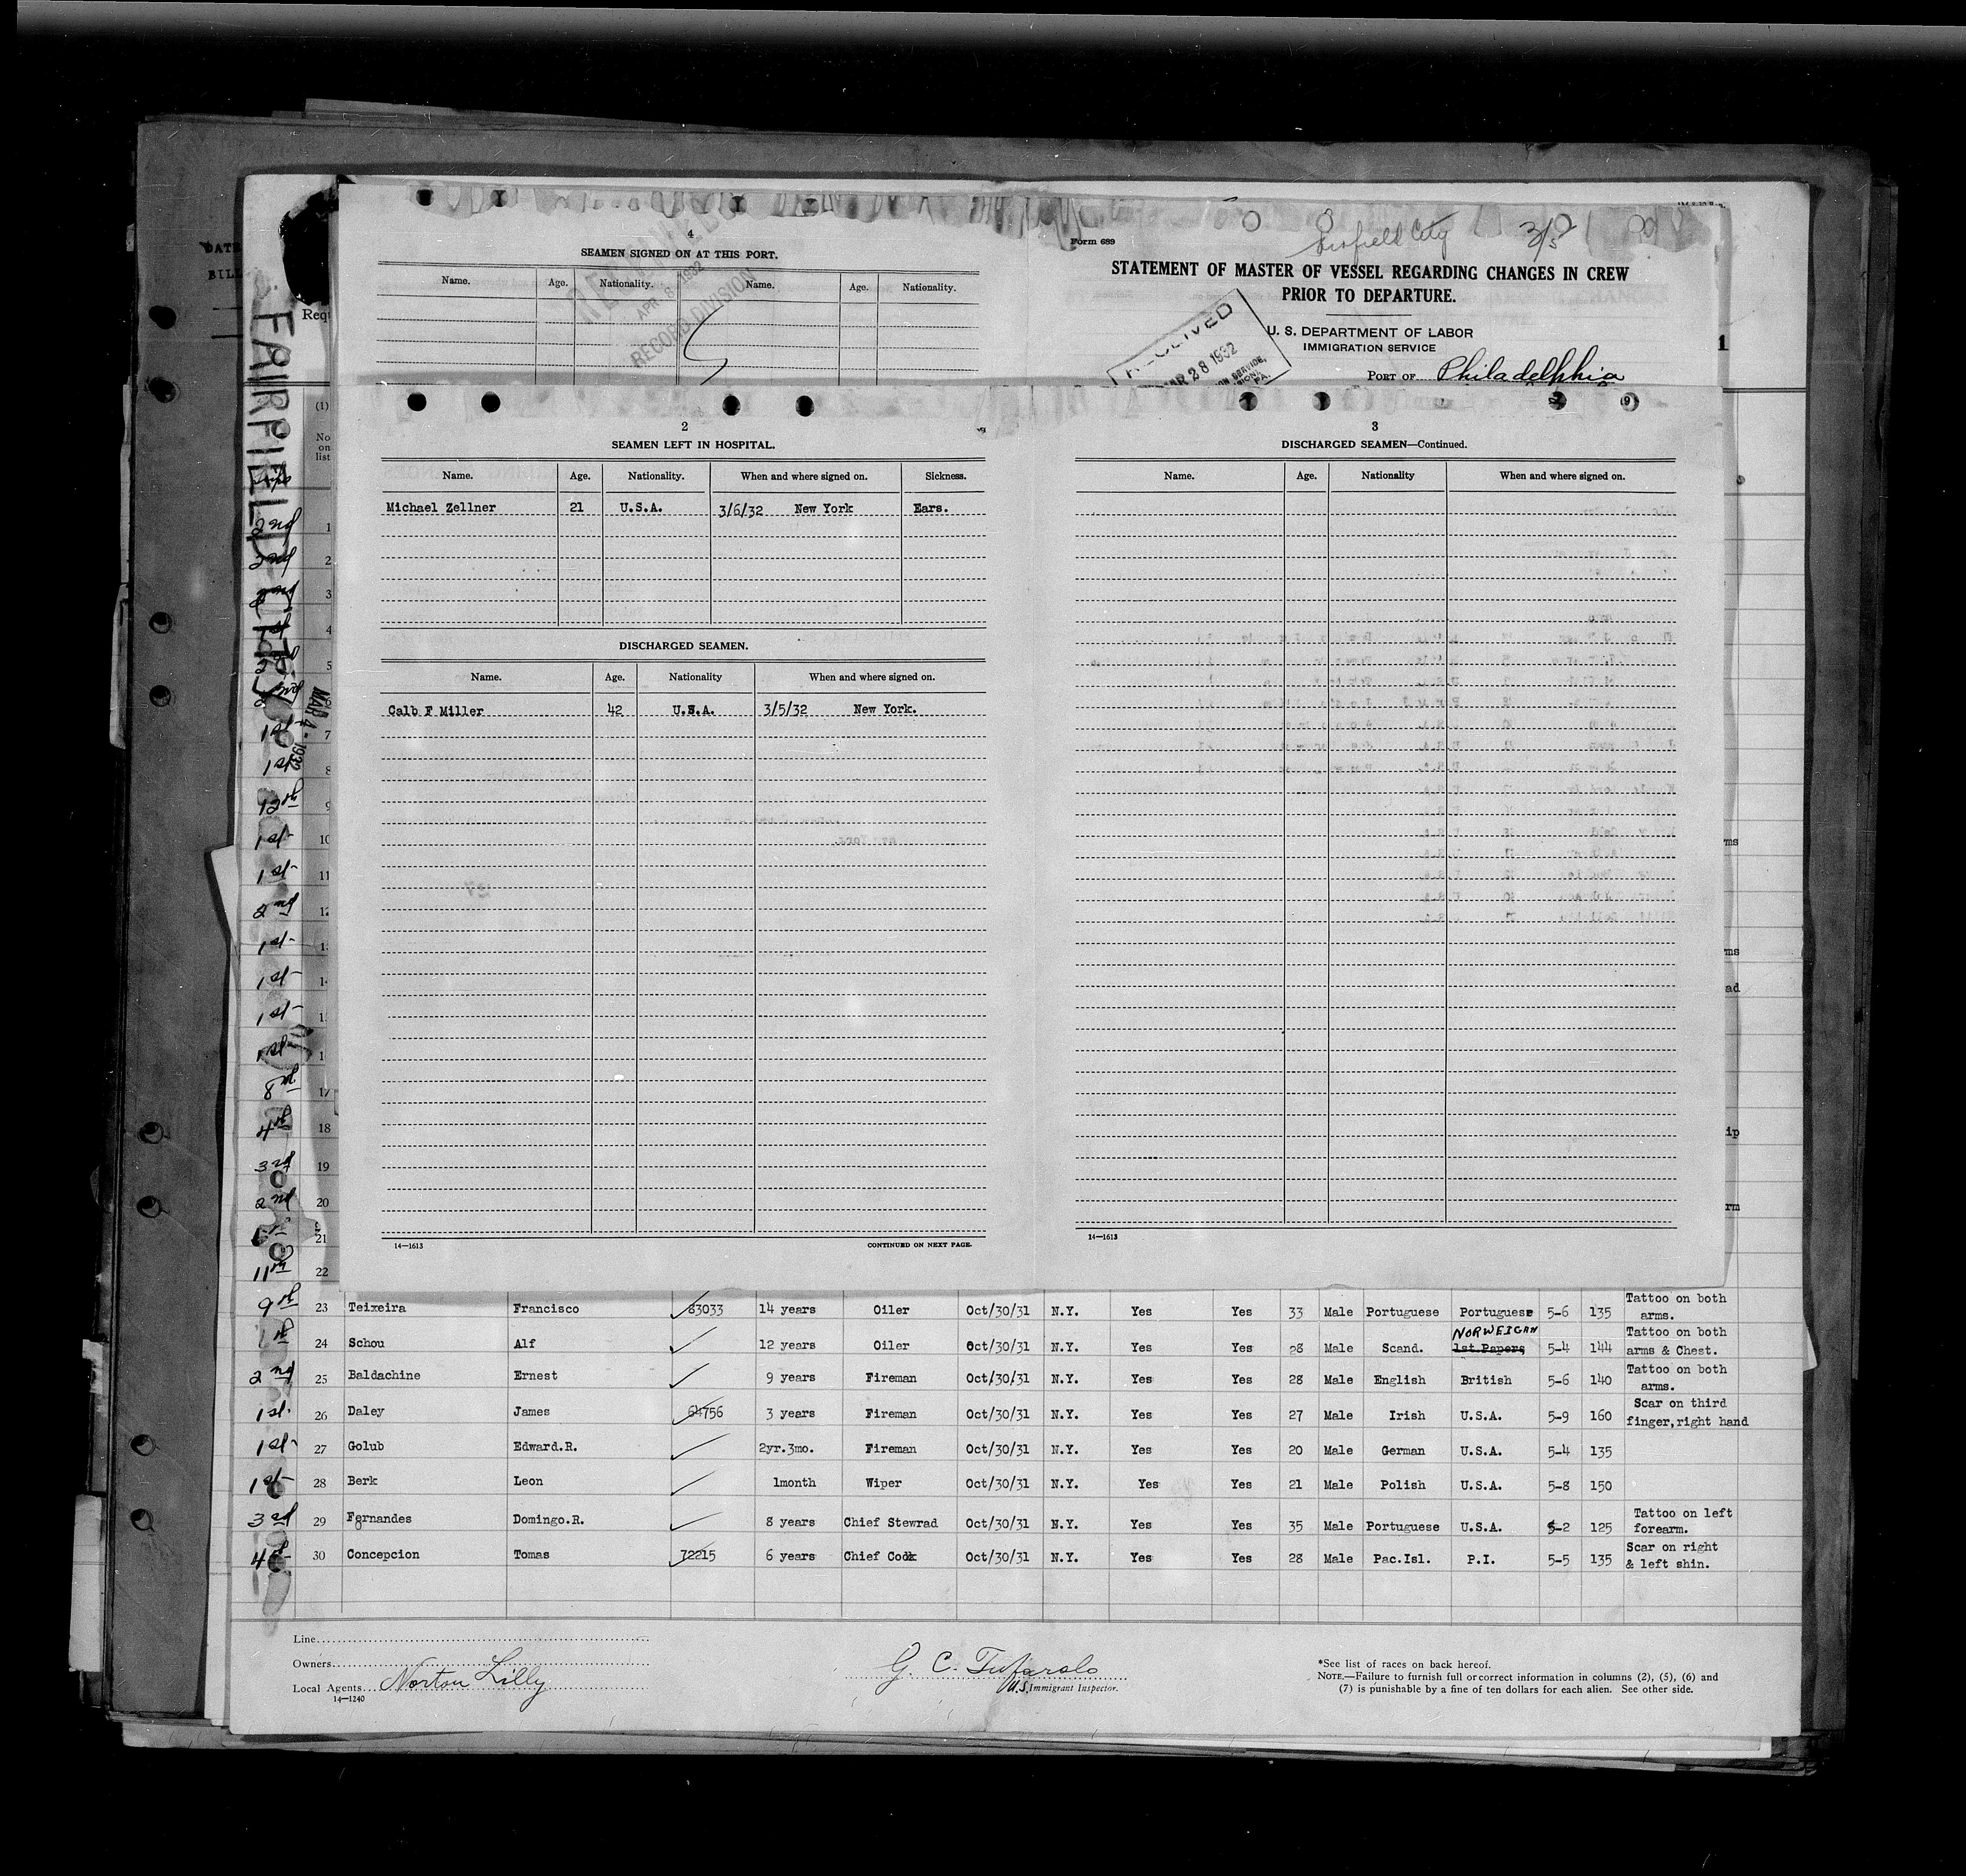 DATE
BILL
FAIRFIELD CITY
Requ
4
SEAMEN SIGNED ON AT THIS PORT.
Name. Age. Nationality. Name. Age. Nationality.
APR 8 1932
RECORD DIVISION
Form 689
STATEMENT OF MASTER OF VESSEL REGARDING CHANGES IN CREW
PRIOR TO DEPARTURE.
U. S. DEPARTMENT OF LABOR
IMMIGRATION SERVICE
RECEIVED
MAR 28 1932
PORT OF Philadelphia
1
(1)
No
on
list
2
SEAMEN LEFT IN HOSPITAL.
Name. Age. Nationality. When and where signed on. Sickness.
Michael Zellner 21 U.S.A. 3/6/32 New York Ears.
DISCHARGED SEAMEN.
Name. Age. Nationality When and where signed on.
Calb F Miller 42 U.S.A. 3/5/32 New York.
14—1613 CONTINUED ON NEXT PAGE.
3
DISCHARGED SEAMEN—Continued.
Name. Age. Nationality When and where signed on.
14—1613
MAR 4 - 1932
2nd 1
3rd 2
3
4
5
7
1st 8
12th 9
1st 10
1st 11
2nd 12
1st
1st
1st
1st
8th 17
4th 18
3rd 19
2nd 20
21
11th 22
9th 23 Teixeira Francisco 83033 14 years Oiler Oct/30/31 N.Y. Yes Yes 33 Male Portuguese Portuguese 5-6 135 Tattoo on both
arms.
24 Schou Alf 12 years Oiler Oct/30/31 N.Y. Yes Yes 28 Male Scand. NORWEIGAN 1st Papers 5-4 144 Tattoo on both
arms & Chest.
2nd 25 Baldachine Ernest 9 years Fireman Oct/30/31 N.Y. Yes Yes 28 Male English British 5-6 140 Tattoo on both
arms.
1st 26 Daley James 64756 3 years Fireman Oct/30/31 N.Y. Yes Yes 27 Male Irish U.S.A. 5-9 160 Scar on third
finger,right hand
1st 27 Golub Edward.R. 2yr.3mo. Fireman Oct/30/31 N.Y. Yes Yes 20 Male German U.S.A. 5-4 135
1st 28 Berk Leon 1month Wiper Oct/30/31 N.Y. Yes Yes 21 Male Polish U.S.A. 5-8 150
3rd 29 Fernandes Domingo.R. 8 years Chief Stewrad Oct/30/31 N.Y. Yes Yes 35 Male Portuguese U.S.A. 5-2 125 Tattoo on left
forearm.
30 Concepcion Tomas 72215 6 years Chief Cook Oct/30/31 N.Y. Yes Yes 28 Male Pac.Isl. P.I. 5-5 135 Scar on right
& left shin.
Line
Owners
Local Agents Norton Lilly
14—1240
G. C. Tufarolo
U.S. Immigrant Inspector.
*See list of races on back hereof.
NOTE.—Failure to furnish full or correct information in columns (2), (5), (6) and
(7) is punishable by a fine of ten dollars for each alien. See other side.